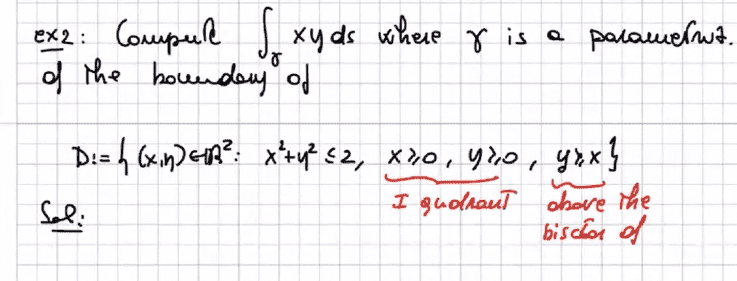 ex2: Compute ∫_γ xy ds where γ is a parametriz.
of the boundary of
D:= { (x,y)∈ℝ²: x²+y² ≤ 2, x≥0, y≥0, y≥x }
I quadrant above the
Sol: bisector of